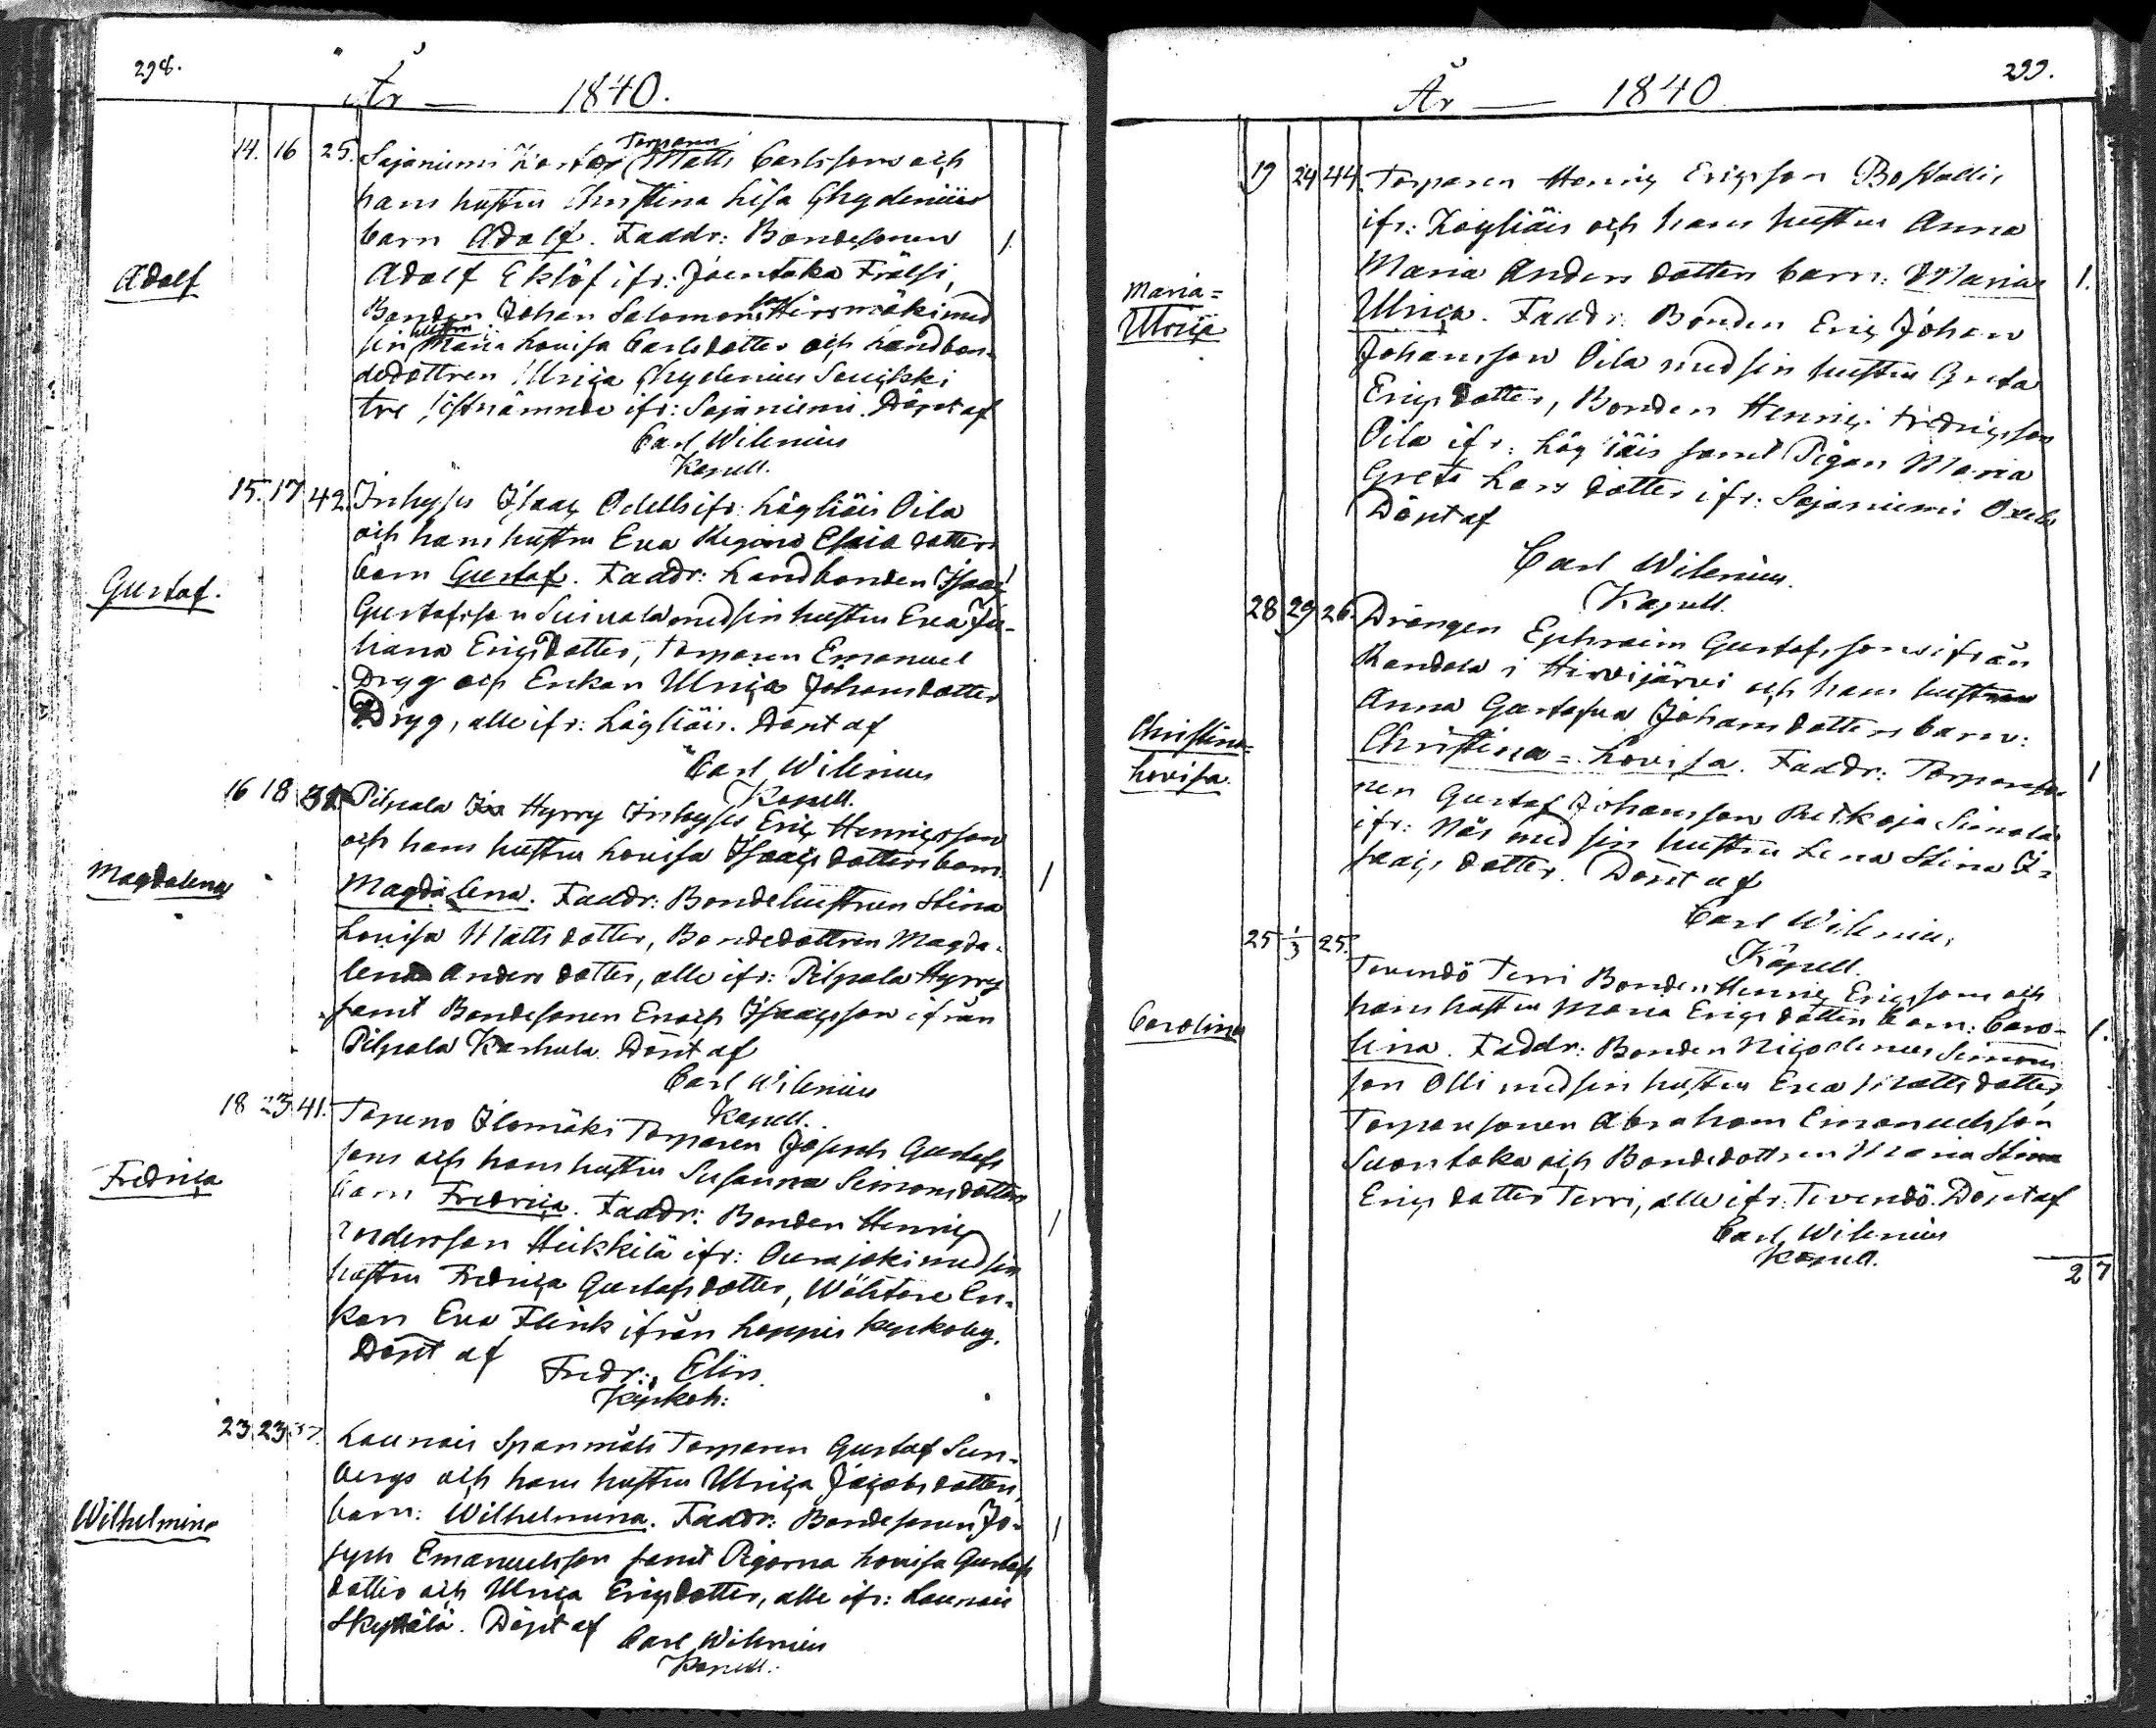 298.
År — 1840.
14. 16 25. Sajaniemi Torparen Matts Carlssons och
hans hustru Christina Lisa Chydenii
barn Adolf. Faddr: Bondesonen 1.
Adolf
Adolf Eklöf ifr: Joentaka Frälsi,
Bonden Johan Salomonsson Hirsmäki med
sin hustru Maria Lovisa Carlsdotter och Landbon-
dedottren Ulrica Chydenius Soukki
tre sistnämnde ifr: Sajaniemi. Döpt af
Carl Wilenius
Kapell.
15. 17 42. Inhyses Isaac Odells ifr: Läyliäis Oila
och hans hustru Eva Regina Esaiedotters
barn Gustaf. Faddr: Landbonden Isaac 1
Gustaf.
Gustafsson Suivala med sin hustru Eva Ju-
liana Ericsdotter, Torparen Emanuel
Dryg och Enkan Ulrica Johansdotter
Dryg, alle ifr: Läyliäis. Döpt af
Carl Wilenius
Kapell.
16 18 Pilpala Hyrry Inhyses Eric Henricsson
och hans hustru Lovisa Isaacsdotters barn 1
Magdalena
Magdalena. Faddr: Bondehustrun Stina
Lovisa Mattsdotter, Bondedottren Magda-
lena Andersdotter, alle ifr: Pilpala Hyrry
samt Bondesonen Enoch Isaacsson ifrån
Pilpala Karhula. Döpt af
Carl Wilenius
Kapell.
18 23 41. Topeno Ilomäki Torparen Joseph Gustafs
sons och hans hustru Susanna Simonsdotters
Fredrica
barn Fredrica. Faddr: Bonden Henric 1
Andersson Heikkilä ifr: Ourajoki med sin
hustru Fredrica Gustafsdotter, Wälstare En-
kan Eva Flink ifrån Loppis Kyrkoby.
Döpt af
Fredr: Elis.
Kyrkoh:
23 23 37. Launois Spannmäki Torparen Gustaf Sun-
bergs och hans hustru Ulrica Jacobsdotters
Wilhelmina
barn: Wilhelmina. Faddr: Bondesonen Jo- 1
seph Emanuelsson samt Pigorna Lovisa Gustafs
dotter och Ulrica Ericsdotter, alle ifr: Launois
Skyttälä. Döpt af
Carl Wilenius
Kapell.
299.
År — 1840
19 24 44. Torparen Henric Ericsson Boställis
ifr: Läyliäis och hans hustru Anna
Maria Andersdotters barn: Maria 1.
Maria=
Ulrica
Ulrica. Faddr: Bonden Eric Johan
Johansson Oila med sin hustru Greta
Ericsdotter, Bonden Henric Fredricsson
Oila ifr: Läyliäis samt Pigan Maria
Greta Larsdotter ifr: Sajaniemi
Döpt af
Carl Wilenius.
Kapell.
28 29 26. Drängen Ephraim Gustafssons ifrån
Randala i Hirvijärvi och hans hustru
Anna Gustafva Johansdotters barn:
Christina=
Lovisa.
Christina=Lovisa. Faddr: Torpareso- 1
nen Gustaf Johansson Ruskoja Simola
ifr: Nås med sin hustru Lena Stina I-
saacsdotter. Döpt af
Carl Wilenius,
Kapell.
25 1/3 25. Tevendö Terri Bonden Henric Ericssons och
hans hustru Maria Ericsdotters barn: Caro- 1.
Carolina
lina. Faddr: Bonden Nicodemus Simons
son Olli med sin hustru Eva Mattsdotter,
Torparesonen Abraham Emanuelsson
Suontaka och Bondedottren Maria Stina
Ericsdotter Terri, alle ifr: Tevendö. Döpt af
Carl Wilenius
Kapell.
2 7